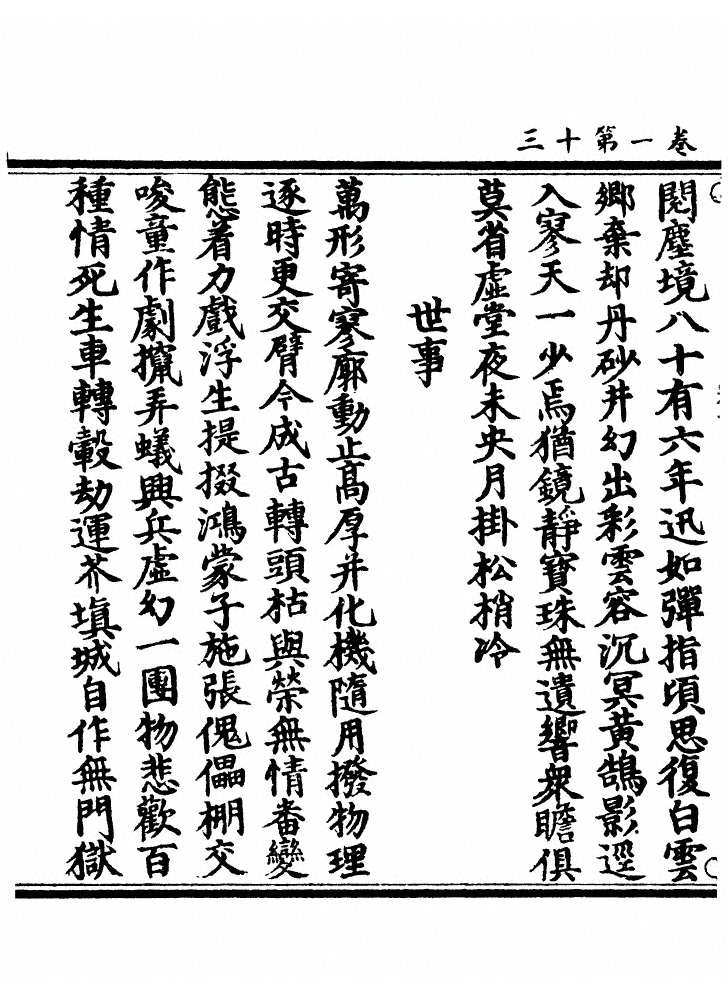 卷一第十三
閱塵境八十有六年迅如彈指頃思復白雲
鄉棄却丹砂井幻出彩雲容沉冥黃鵠影逕
入寥天一少焉猶鏡靜寶珠無遺響衆瞻俱
莫省虛堂夜未央月掛松梢冷
世事
萬形寄寥廓動止高厚并化機隨用撥物理
逐時更交臂今成古轉頭枯與榮無情畨變
態着力戲浮生提掇鴻蒙子施張傀儡棚交
唆童作劇攛弄蟻興兵虛幻一團物悲歡百
種情死生車轉轂劫運芥塡城自作無門獄